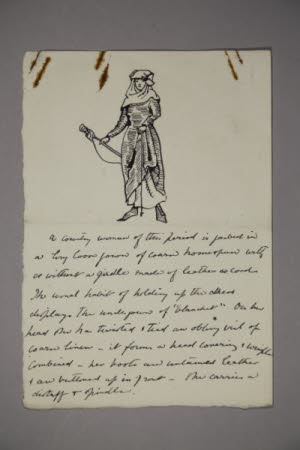 A country woman of this period is garbed in
a long loose gown of coarse homespun with
or without a girdle made of leather or cord.
The usual habit of holding up the dress
displays the undergown of "blanket". On her
head she has twisted & tied an oblong veil of
coarse linen - it forms a head covering &
combined - her boots are untanned leather
& are buttoned up in front - She carries a
distaff & spindle.